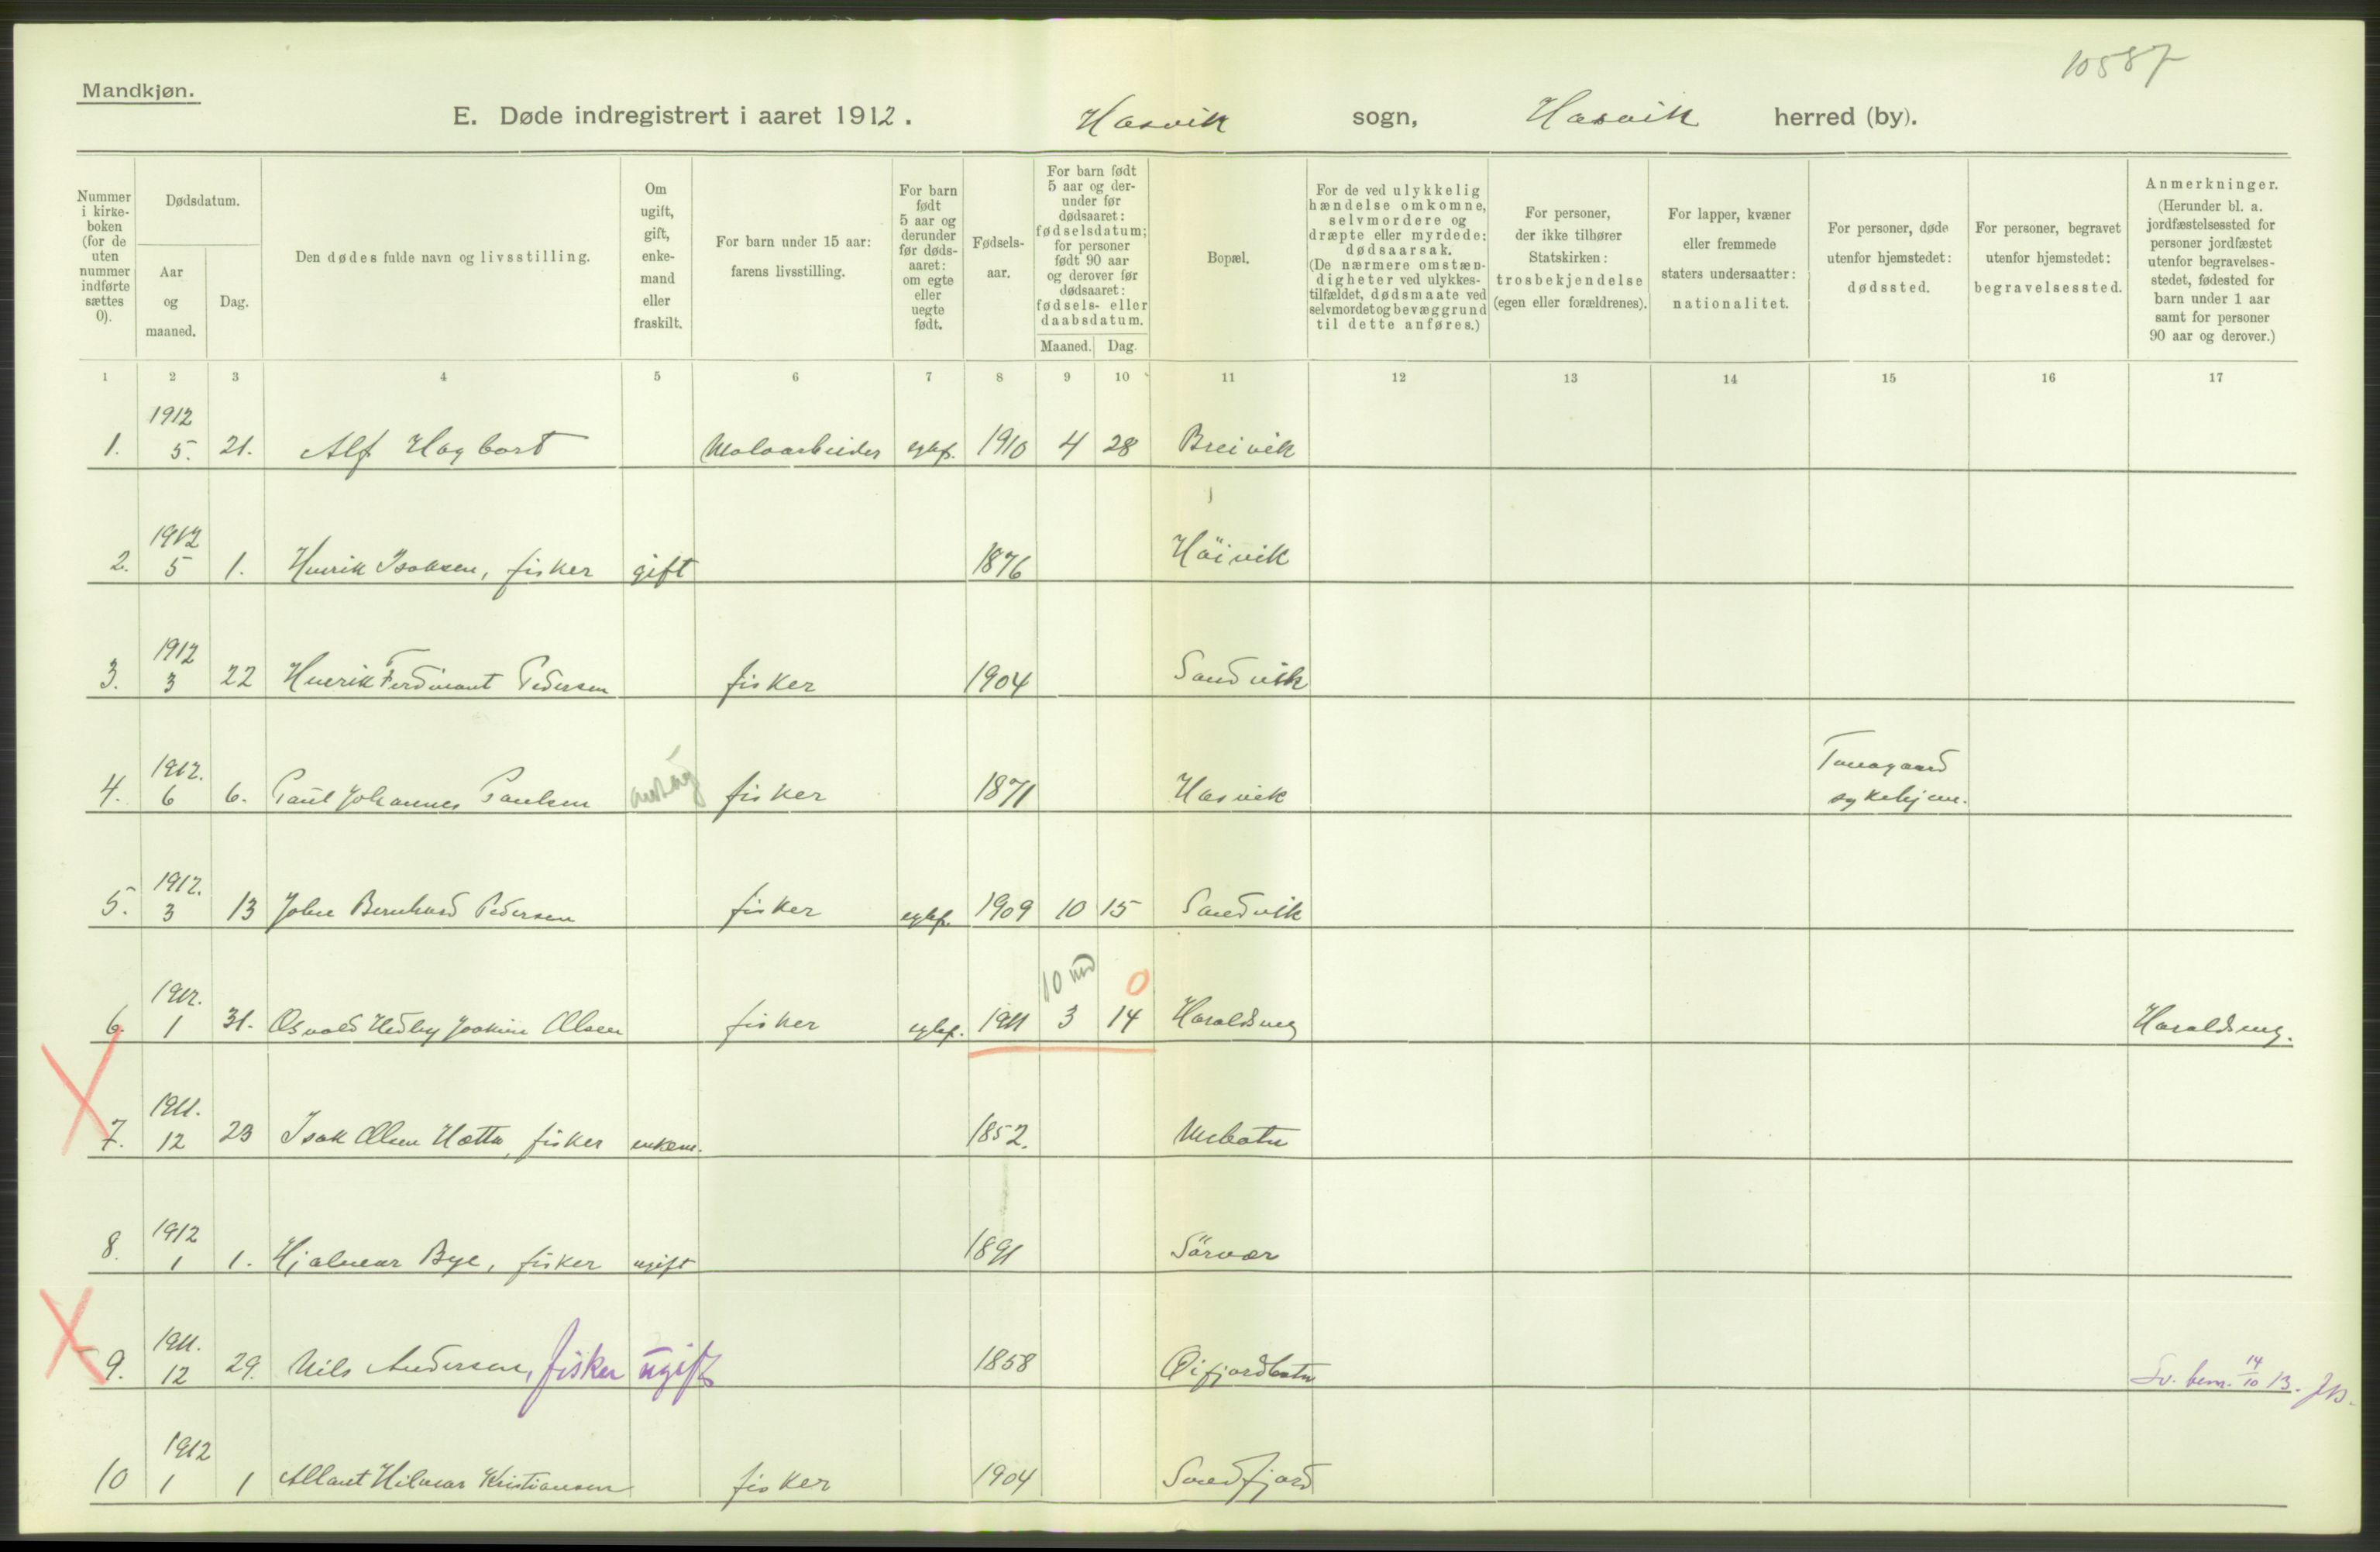 10587
Mandkjøn.
E. Døde indregistrert i aaret 1912. Hasvik sogn, Hasvik herred (by).
Nummer i kirke- boken (for de uten nummer indførte sættes 0).
Dødsdatum.
Aar og maaned.
Dag.
Den dødes fulde navn og livsstilling.
Om ugift, gift, enke- mand eller fraskilt.
For barn under 15 aar: farens livsstilling.
For barn født 5 aar og derunder før døds- aaret: om egte eller uegte født.
Fødsels- aar.
For barn født 5 aar og der- under før dødsaaret: fødselsdatum; for personer født 90 aar og derover før dødsaaret: fødsels- eller daabsdatum.
Maaned. Dag.
Bopæl.
For de ved ulykkelig hændelse omkomne, selvmordere og dræpte eller myrdede: dødsaarsak. (De nærmere omstæn- digheter ved ulykkes- tilfældet, dødsmaate ved selvmordet og bevæggrund til dette anføres.)
For personer, der ikke tilhører Statskirken: trosbekjendelse (egen eller forældrenes).
For lapper, kvæner eller fremmede staters undersaatter: nationalitet.
For personer, døde utenfor hjemstedet: dødssted.
For personer, begravet utenfor hjemstedet: begravelsessted.
Anmerkninger. (Herunder bl. a. jordfæstelsessted for personer jordfæstet utenfor begravelses- stedet, fødested for barn under 1 aar samt for personer 90 aar og derover.)
1 2 3 4 5 6 7 8 9 10 11 12 13 14 15 16 17
1912
1. 5. 21. Alf Hagbart 1910 4 28 Breivik
1912
2. 5 1. Henrik Isaksen, fisker gift 1876 Häivik
1912
3. 3 22 Henrik Ferdinant Pedersen fisker 1904 Sandvik
1912. Tanagaard
4. 6 6. Paul Johannes Paulsen fisker 1871 Hasvik sykehjem.
1912.
5. 3 13 John Bernhard Pedersen fisker 1909 10 15 Sandvik
1912. 10 md 0
6. 1 31. Osvald Hedley Joakim Olsen fisker 1911 3 14 Haraldseng Haraldseng.
1911.
7. 12 23 Isak Olsen Hætta, fisker enkem. 1852. Mebotn
1912
8. 1 1. Hjalmar Bye, fisker ugift 1891 Sörvær
1911.
9. 12 29. Nils Andersen, fisker ugift 1858 Øifjordbotn Sv. bem. 14/10 13.
1912
10 1 1 Allant Hilmar Kristiansen fisker 1904 Sandfjord